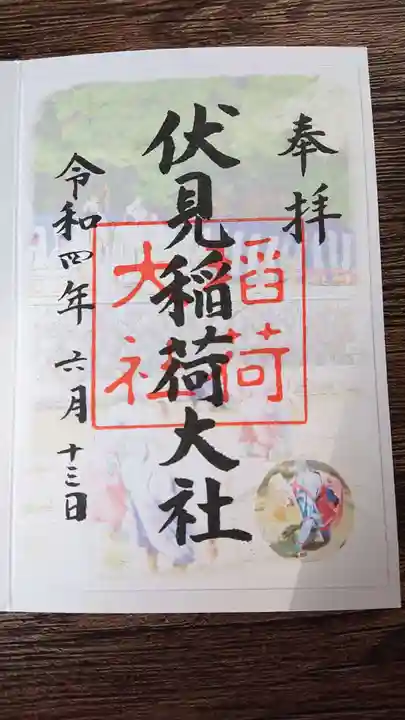 奉拝
伏見稲荷大社
稲荷
大社
令和四年六月十三日